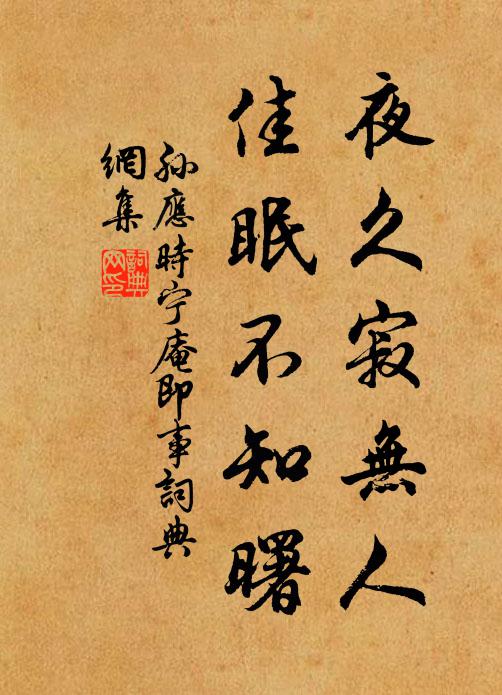 夜久寂無人
佳眠不知曙
孫應時宁庵即事詞典
網集
詞典网印